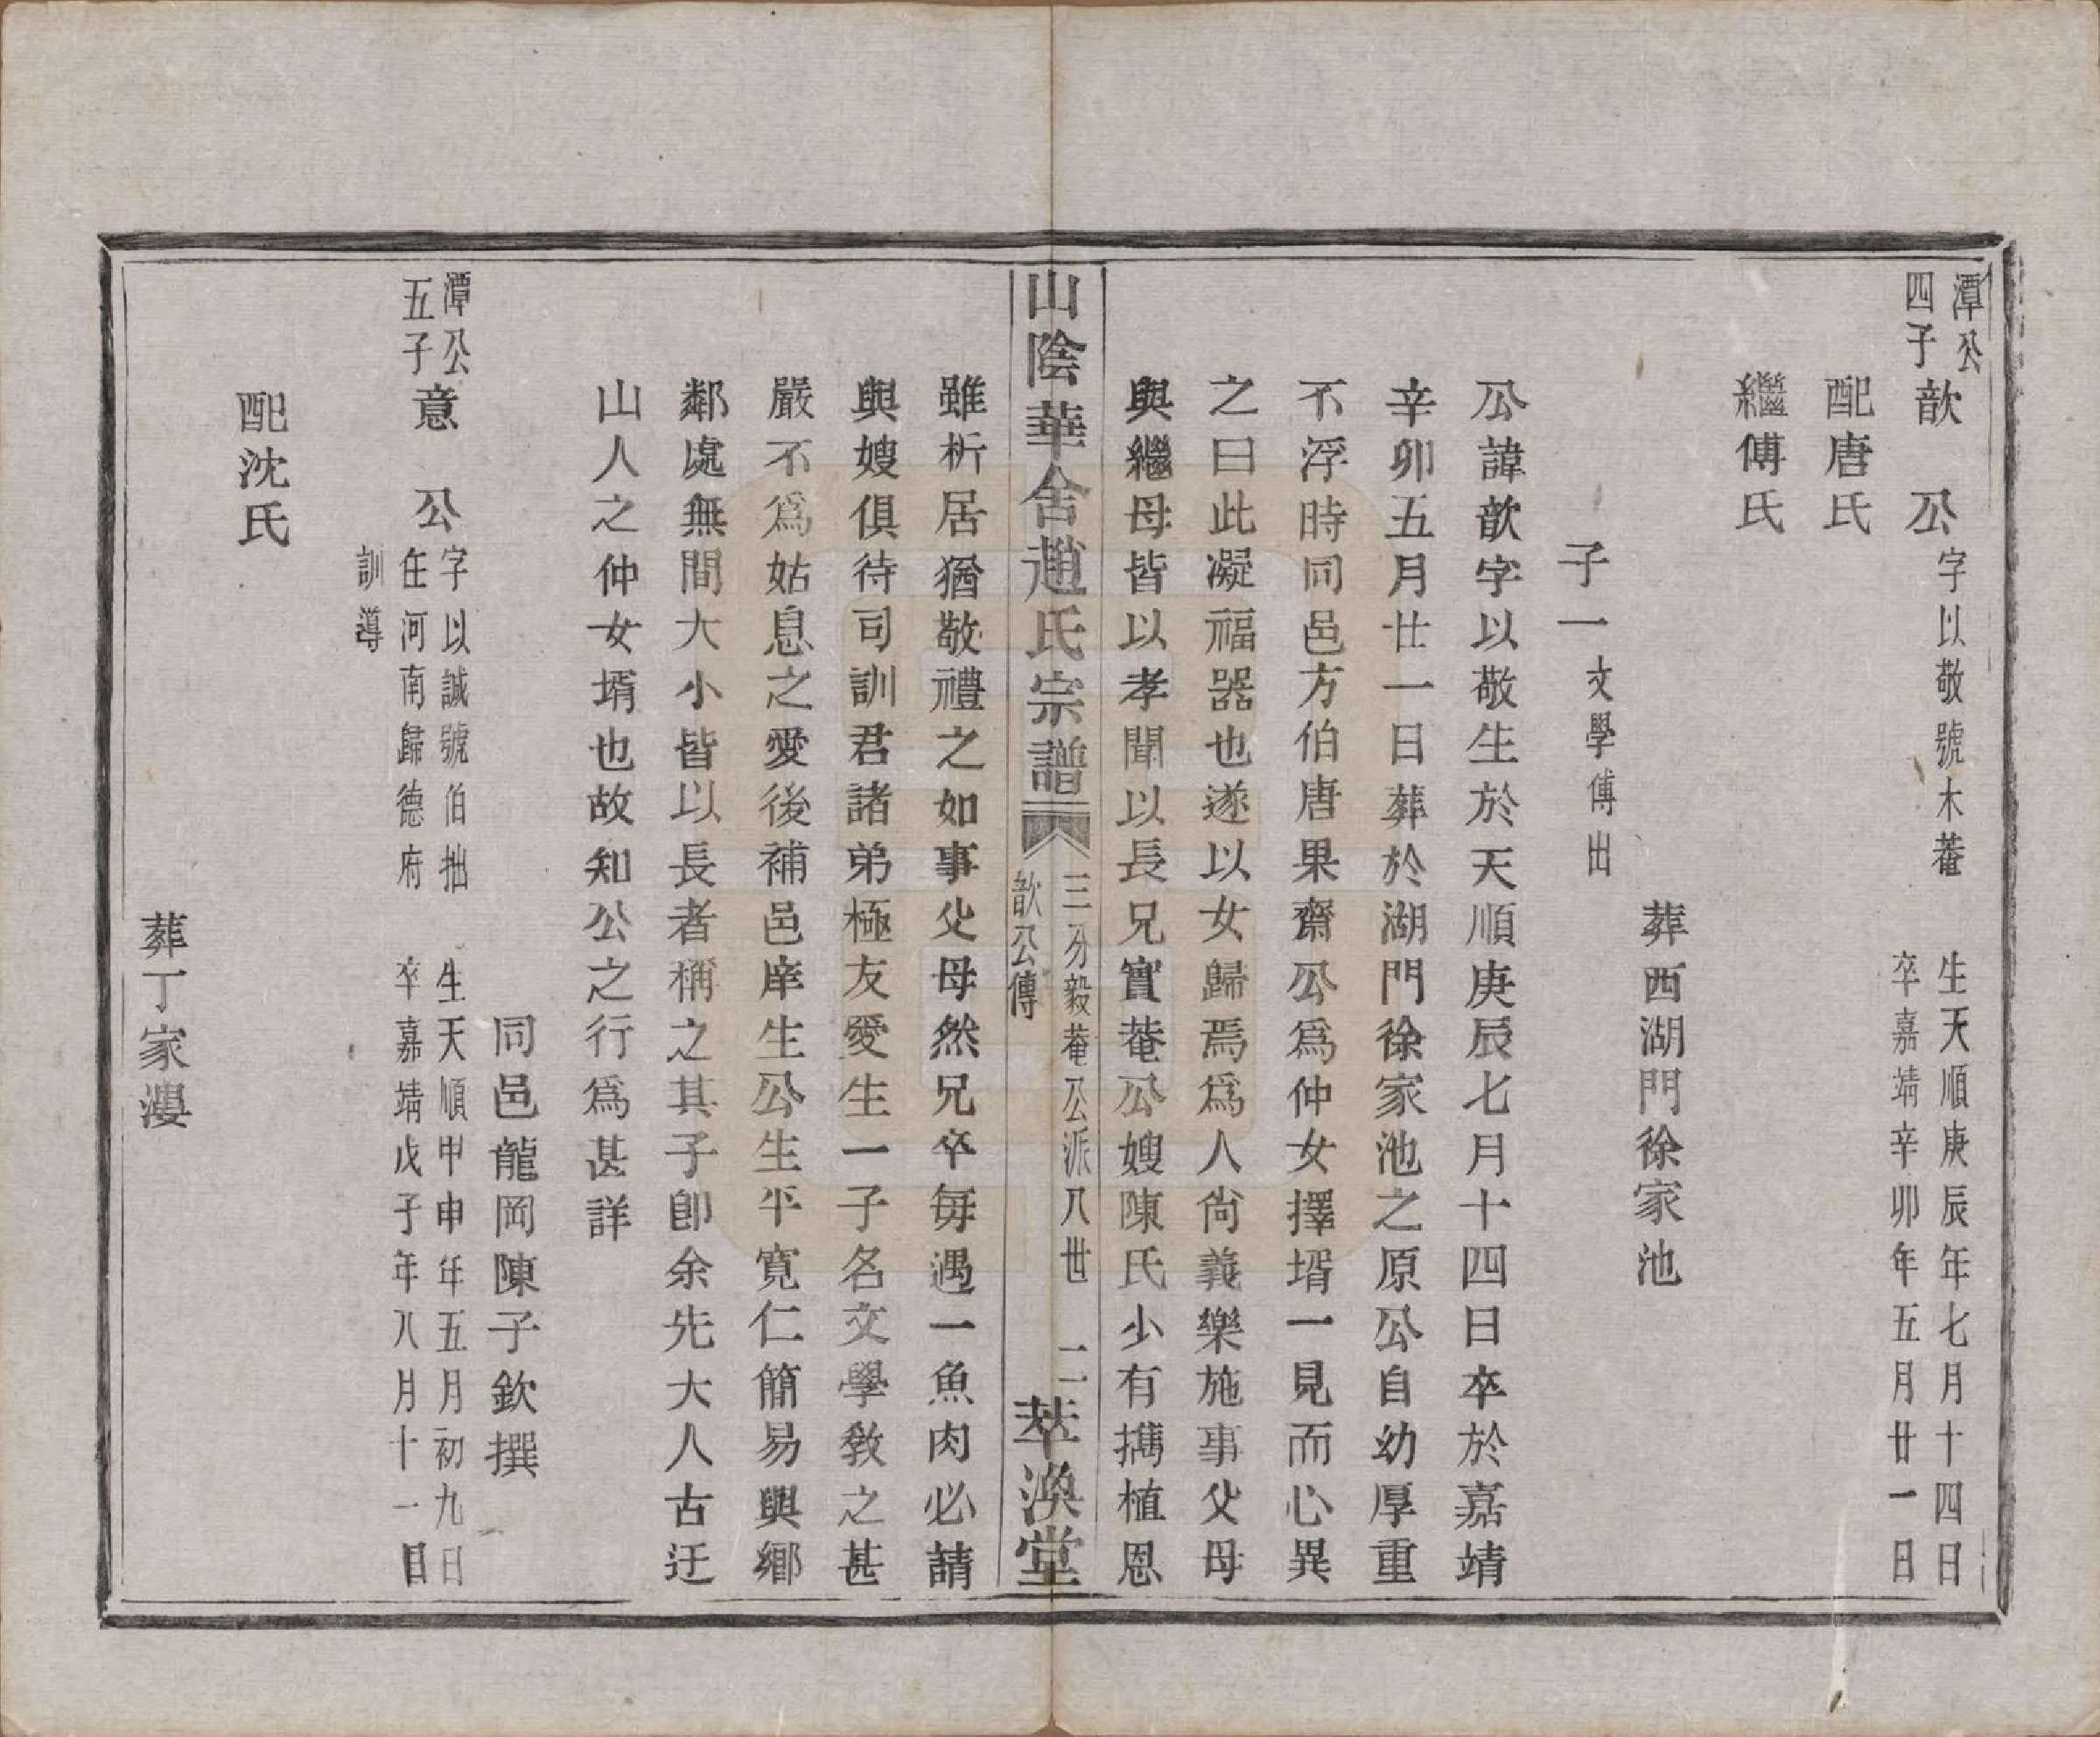 潭公
四子
歆　公
字以敬號木菴
生天順庚辰年七月十四日
卒嘉靖辛卯年五月廿一日
配唐氏
繼傅氏
葬西湖門徐家池
子一文學傅出
公諱歆字以敬生於天順庚辰七月十四日卒於嘉靖
辛卯五月廿一日葬於湖門徐家池之原公自幼厚重
不浮時同邑方伯唐果齋公為仲女擇壻一見而心異
之曰此凝福器也遂以女歸焉為人尙義樂施事父母
與繼母皆以孝聞以長兄實菴公嫂陳氏少有擕植恩
山陰華舍趙氏宗譜
三分毅菴公派八世　二
歆公傳
萃渙堂
雖析居猶敬禮之如事父母然兄卒每遇一魚肉必請
與嫂俱待司訓君諸弟極友愛生一子名文學敎之甚
嚴不為姑息之愛後補邑庠生公生平寬仁簡易與鄉
鄰處無間大小皆以長者稱之其子卽余先大人古迂
山人之仲女壻也故知公之行為甚詳
同邑龍岡陳子欽撰
潭公
五子
意　公
字以誠號伯拙
任河南歸德府
訓導
生天順甲申年五月初九日
卒嘉靖戊子年八月十一日
配沈氏
葬丁家漊